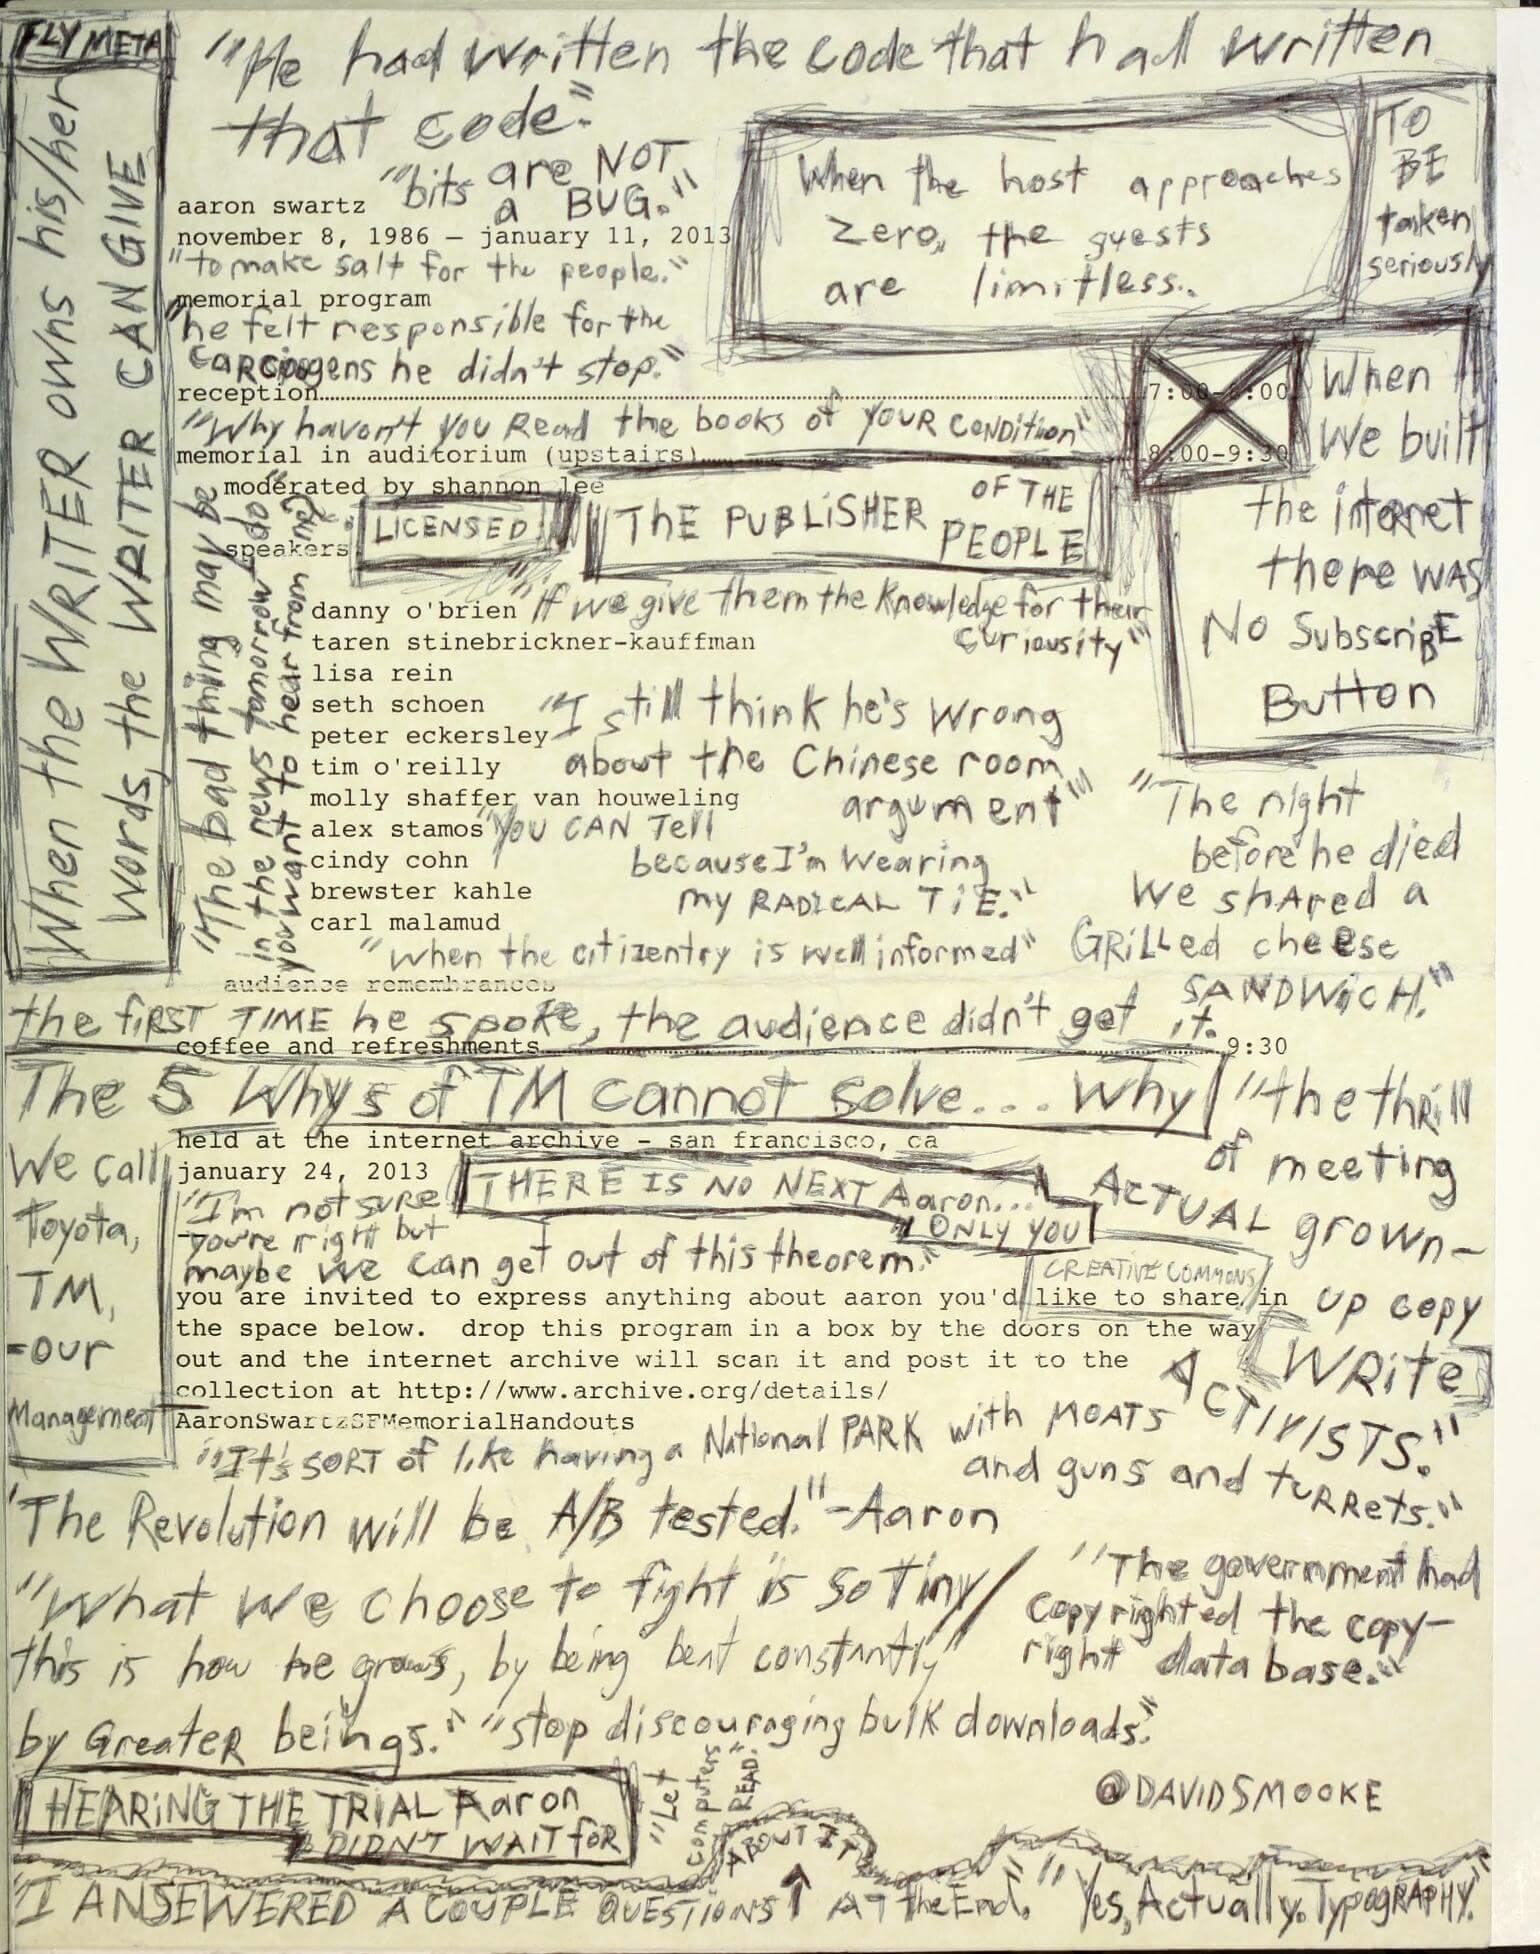 FLY META
"He had written the code that had written
that code."
"bits are NOT
a BUG."
When the host approaches
zero, the guests
are limitless..
TO
BE
taken
seriously
When the WRITER owns his/her
words, the WRITER CAN GIVE
aaron swartz
november 8, 1986 – january 11, 2013
"to make salt for the people."
memorial program
"he felt responsible for the
carcinogens he didn't stop."
reception 7:00-8:00
"Why haven't you Read the books of YOUR CONDition"
memorial in auditorium (upstairs) 8:00-9:30
When
We built
the internet
there WAS
No SubscribE
Button
moderated by shannon lee
LICENSED
THE PUBLiSHER OF THE
PEOPLE
speakers
"The bad thing may be
in the news tomorrow "do
you want to hear from me?"
danny o'brien
"If we give them the Knowledge for their
curiousity"
taren stinebrickner-kauffman
lisa rein
seth schoen
peter eckersley
tim o'reilly
molly shaffer van houweling
alex stamos
cindy cohn
brewster kahle
carl malamud
"I still think he's wrong
about the Chinese room
argument"
"You CAN Tell
because I'm wearing
my RADICAL TiE."
"The night
before he died
We shared a
GRiLLed cheese
SANDWiCH."
"when the citizentry is well informed"
audience remembrances
the fiRST TIME he spoke, the audience didn't get it.
coffee and refreshments 9:30
The 5 Whys of TM cannot solve... Why
We call
Toyota,
TM,
-our
Management
held at the internet archive – san francisco, ca
january 24, 2013
THERE IS NO NEXT Aaron..."
"ONLY YOU
"I'm not sure
you're right but
maybe we can get out of this theorem."
"the thrill
of meeting
ACTUAL grown-
up copy
WRite
ACTIVISTS."
CREATIVE COMMONS
you are invited to express anything about aaron you'd like to share in
the space below.  drop this program in a box by the doors on the way
out and the internet archive will scan it and post it to the
collection at http://www.archive.org/details/
AaronSwartzSFMemorialHandouts
"It's SORT of like having a National PARK with MOATS
and guns and tuRRets."
"The Revolution will be A/B tested." -Aaron
"What we choose to fight is so tiny/
this is how he grows, by being beat constantly
by GreateR beings."
"The government had
copyrighted the copy-
right data base."
"stop discouraging bulk downloads."
HEARiNG THE TRIAL Aaron
DIDN'T WAIT foR
"Let
computers
READ."
@DAVIDSMOOKE
ABOUT IT
"I ANSEWERED A COUPLE QUESTiIONS ↑ AT the End."
"Yes, Actually. TypogRAPHY."